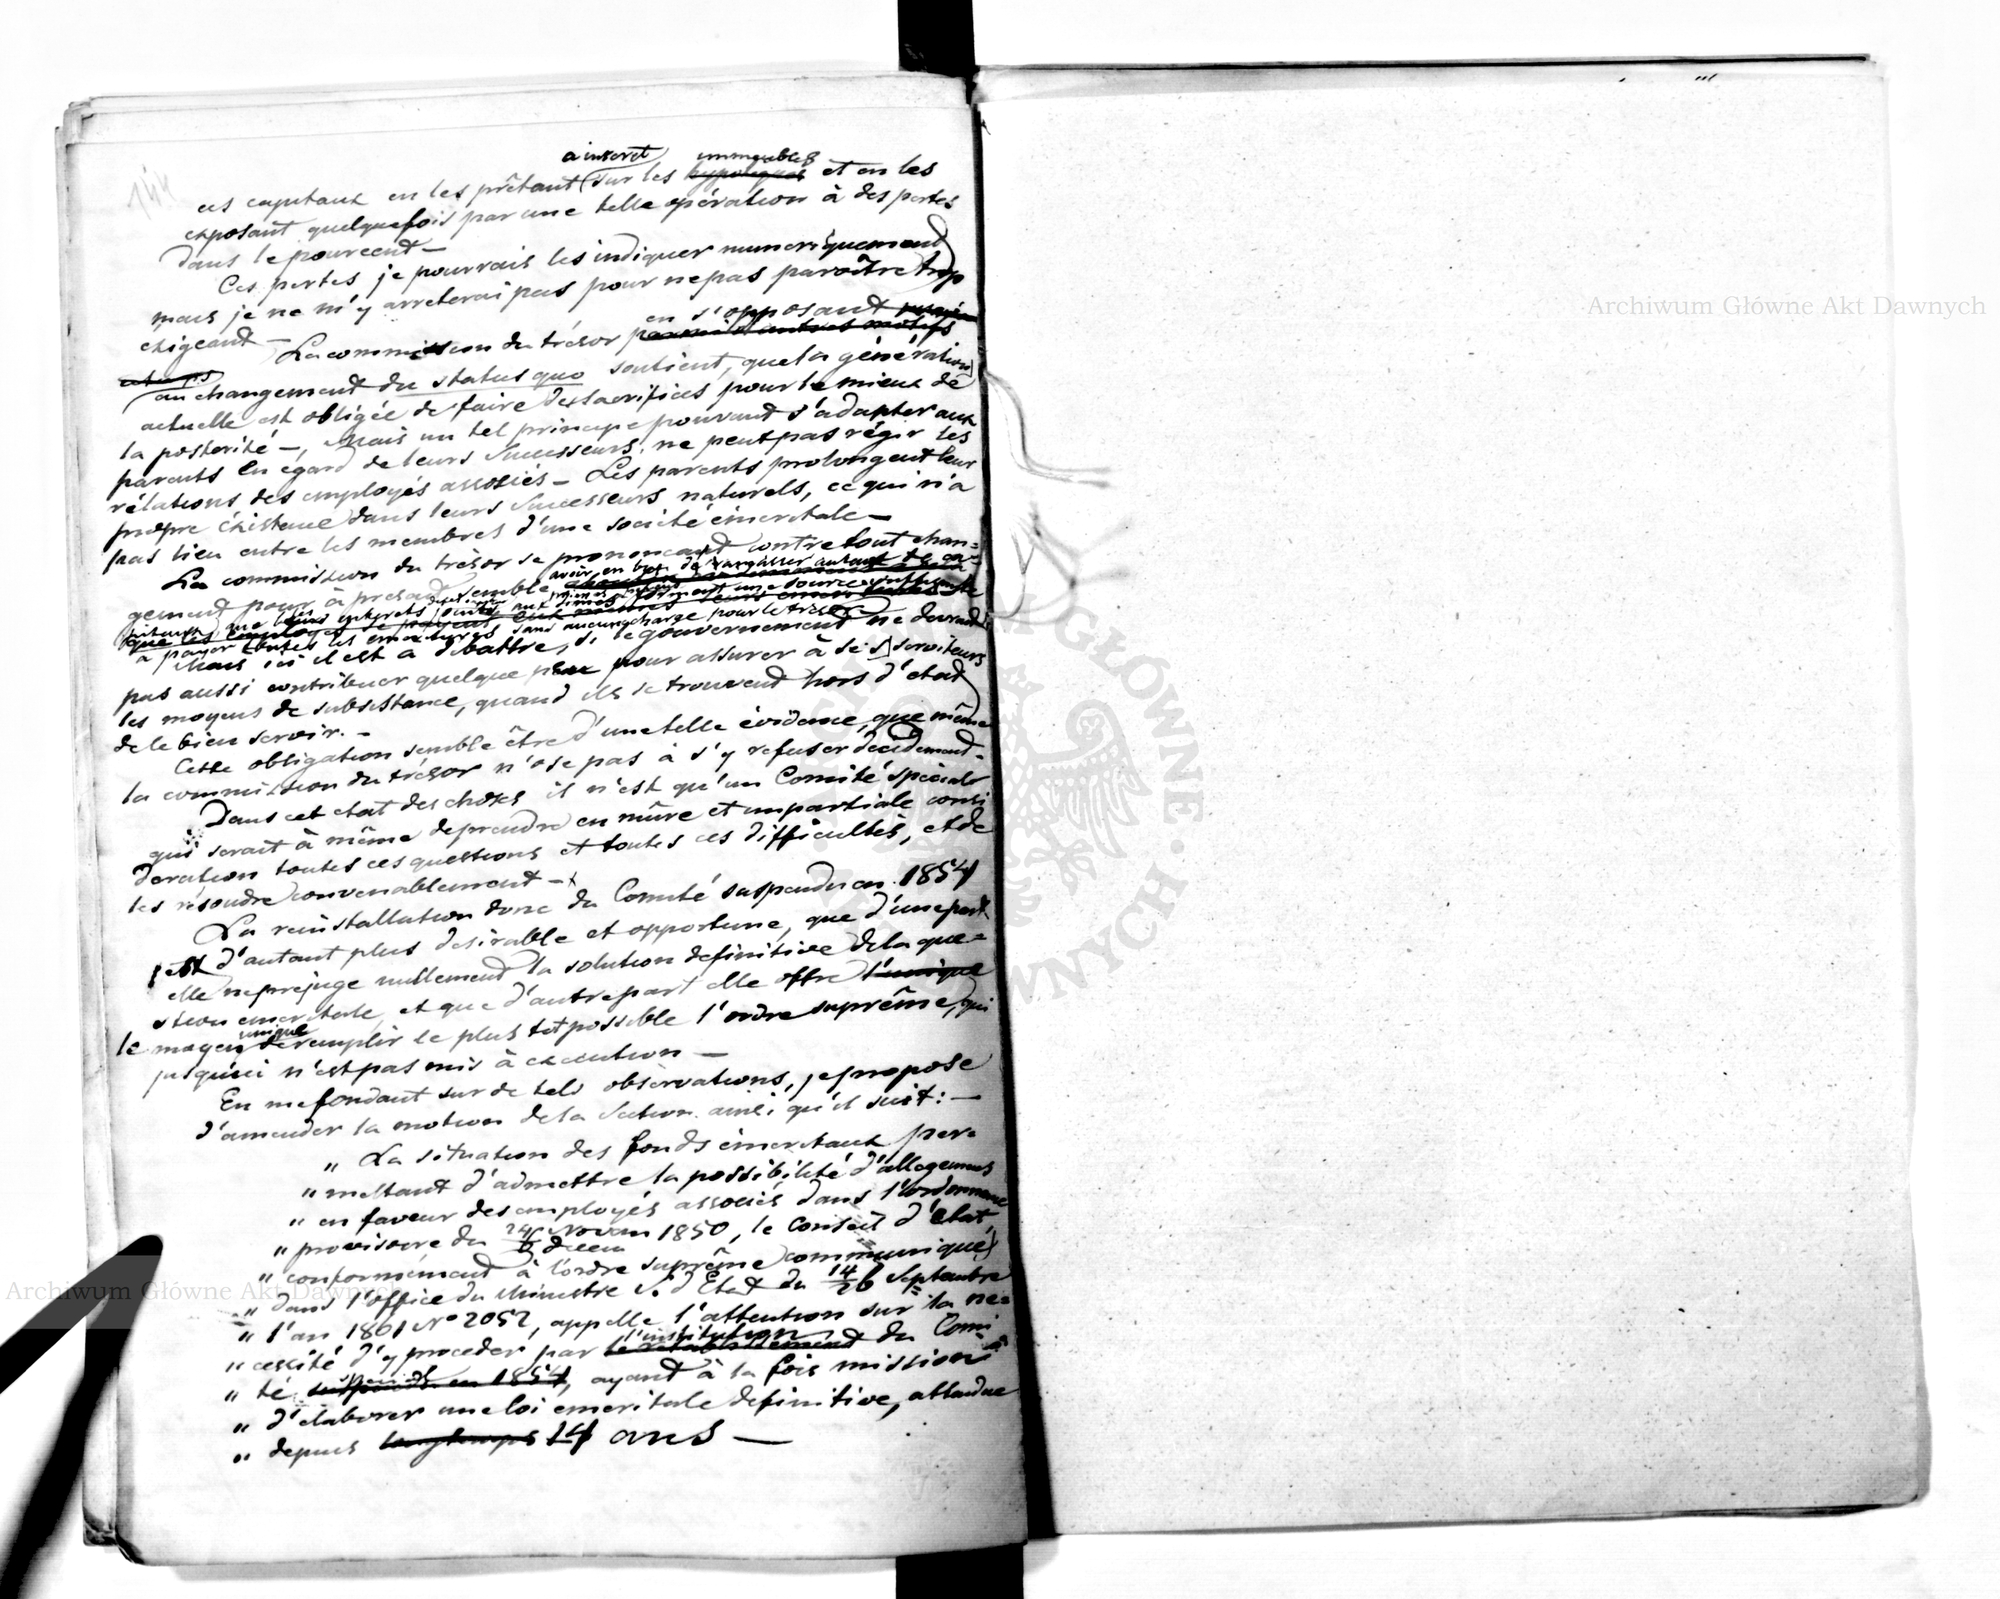 144
à interet immeubles
ces capitaux en les prêtant sur les hypoteques et en les
exposant quelquefois par une telle opération à des pertes
dans le pourcent —
Ces pertes je pourrais les indiquer numeriquement
mais je ne m'y arreterai pas pour ne pas paroître trop
exigeant —
en s'opposant
La commission du trésor parmi d'autres motifs
au changement du status quo soutient, que la génération
actuelle est obligée de faire des sacrifices pour le mieux de
la posterité —, Mais un tel principe pouvant s'adapter aux
parents en égard de leurs successeurs, ne peut pas régir les
rélations des employés associés — Les parents prolongent leur
propre éxistence dans leurs successeurs naturels, ce qui n'a
pas lieu entre les membres d'une société émeritale —
La commission du trésor se prononçant contre tout chan=
gement pour à present semble avoir en but
à payer toutes les émeritures sans aucune charge pour le trésor
Mais ici il est à débattre, si le gouvernement ne devrait
pas aussi contribuer quelque peu pour assurer à ses serviteurs
les moyens de subsistance, quand ils se trouvent hors d'état
de le bien servir. —
Cette obligation semble être d'une telle évidence, que même
la commission du trésor n'ose pas à s'y refuser decidement —
Dans cet etat des choses il n'est qu'un Comité spécial
qui serait à même de prendre en mûre et impartiale consi
deration toutes ces questions et toutes ces difficultés, et de
les résoudre convenablement —
La reinstallation donc du Comité suspendu en 1854
est d'autant plus desirable et opportune, que d'une part
elle ne prejuge nullement la solution definitive de la que=
stion emeritale, et que d'autre part elle offre l'unique
unique
le moyen de remplir le plus tot possible l'ordre suprême, qui
jusqu'ici n'est pas mis à execution —
En me fondant sur de tels observations, je propose
d'amender la motion de la Section ainsi qu'il suit: —
" La situation des fonds émeritaux per=
" mettant d'admettre la possibilité d'allegemens
" en faveur des employés associés dans l'ordonnance
" provisoire du 24 Novem 1850, le Conseil d'état,
6 decem
" conformément à l'ordre suprême communiqué
" dans l'office du Ministre S. d'Etat du 14/26 Septembre
" l'an 1861 No 2052, appelle l'attention sur la ne=
l'institution
" cessité d'y proceder par le retablissement du Comi
" té suspendu en 1854, ayant à la fois mission
" d'élaborer une loi emeritale definitive, attendue
" depuis longtemps 14 ans —
Archiwum Główne Akt Dawnych
Archiwum Główne Akt Dawnych